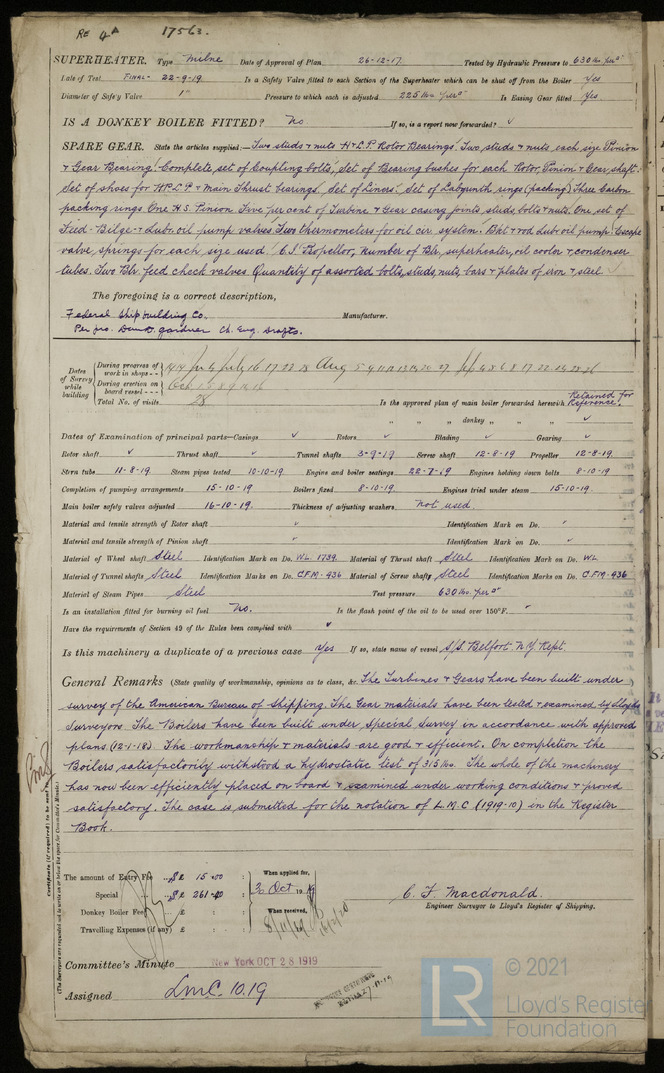 Re 4a 17563.
SUPERHEATER. Type Milne Date of Approval of Plan 26-12-17. Tested by Hydraulic Pressure to 630 lbs per □"
Date of Test FINAL- 22-9-19 Is a Safety Valve fitted to each Section of the Superheater which can be shut off from the Boiler Yes
Diameter of Safety Valve 1" Pressure to which each is adjusted 225 lbs. per □" Is Easing Gear fitted Yes.
IS A DONKEY BOILER FITTED? No If so, is a report now forwarded? ✓
SPARE GEAR. State the articles supplied:— Two studs & nuts H & L.P. Rotor Bearings. Two studs & nuts each size Pinion
& Gear Bearing. Complete set of Coupling bolts, Set of Bearing bushes for each Rotor, Pinion & Gear shaft.
Set of shoes for H.P. L.P. & Main Thrust bearings. Set of Liners. Set of Labyrinth rings (packing) Three carbon
packing rings. One H.S. Pinion. Five per cent of Turbine & Gear casing joints, studs, bolts & nuts. One set of
Feed-Bilge- & Lubr. oil pump valves. Two thermometers for oil cir system. Bkt & rod Lubr oil pump. Escape
valve, springs for each size used. C.I. Propellor, Number of Blr, superheater, oil cooler & condenser
tubes. Two Blr. feed check valves. Quantity of assorted bolts, studs, nuts, bars & plates of iron & steel ✓
The foregoing is a correct description,
Federal Shipbuilding Co. Manufacturer.
Per pro. Gardner Ch. Eng. Drafts.
Dates of Survey while building
During progress of work in shops - - 1919 July 16 17 22 Aug 5
During erection on board vessel - - - Oct
Total No. of visits 28 Is the approved plan of main boiler forwarded herewith Retained for Reference.
" " " donkey " " " ✓
Dates of Examination of principal parts—Casings ✓ Rotors ✓ Blading ✓ Gearing ✓
Rotor shaft ✓ Thrust shaft ✓ Tunnel shafts 3-9-19 Screw shaft 12-8-19 Propeller 12-8-19
Stern tube 11-8-19 Steam pipes tested 10-10-19. Engine and boiler seatings 22-7-19 Engines holding down bolts 8-10-19
Completion of pumping arrangements 15-10-19 Boilers fixed 8-10-19. Engines tried under steam 15-10-19.
Main boiler safety valves adjusted 16-10-19. Thickness of adjusting washers. Not used.
Material and tensile strength of Rotor shaft " Identification Mark on Do. "
Material and tensile strength of Pinion shaft " Identification Mark on Do. "
Material of Wheel shaft Steel Identification Mark on Do. W.L. 1739. Material of Thrust shaft Steel Identification Mark on Do. W.L.
Material of Tunnel shafts Steel Identification Marks on Do. C.F.M-436 Material of Screw shafts Steel Identification Marks on Do. C.F.M-436
Material of Steam Pipes Steel Test pressure 630 lbs. per □"
Is an installation fitted for burning oil fuel No. Is the flash point of the oil to be used over 150°F. "
Have the requirements of Section 49 of the Rules been complied with ✓
Is this machinery a duplicate of a previous case Yes If so, state name of vessel S/S. Belfort N.Y. Rept.
General Remarks (State quality of workmanship, opinions as to class, &c. The Turbines & Gears have been built under
survey of the American Bureau of Shipping. The Gear materials have been tested & examined by Lloyds
Surveyors. The Boilers have been built under Special Survey in accordance with approved
plans (12-1-18). The workmanship & materials are good & efficient. On completion the
Boilers satisfactorily withstood a hydrostatic test of 315 lbs. The whole of the machinery
has now been efficiently placed on board & examined under working conditions & proved
satisfactory. The case is submitted for the notation of L.M.C. (1919-10) in the Register
Book.
Certificate (if required) to be sent
(The Surveyors are requested not to write on or below the space for Committee's Minute.)
The amount of Entry Fee $ 15.00 When applied for,
Special $ 261.00 Oct 1919
Donkey Boiler Fee £ : : When received,
Travelling Expenses (if any) £ : :
C. F. Macdonald.
Engineer Surveyor to Lloyd's Register of Shipping.
Committee's Minute New York OCT 28 1919
Assigned LMC. 10.19
LR © 2021
Lloyd's Register
Foundation